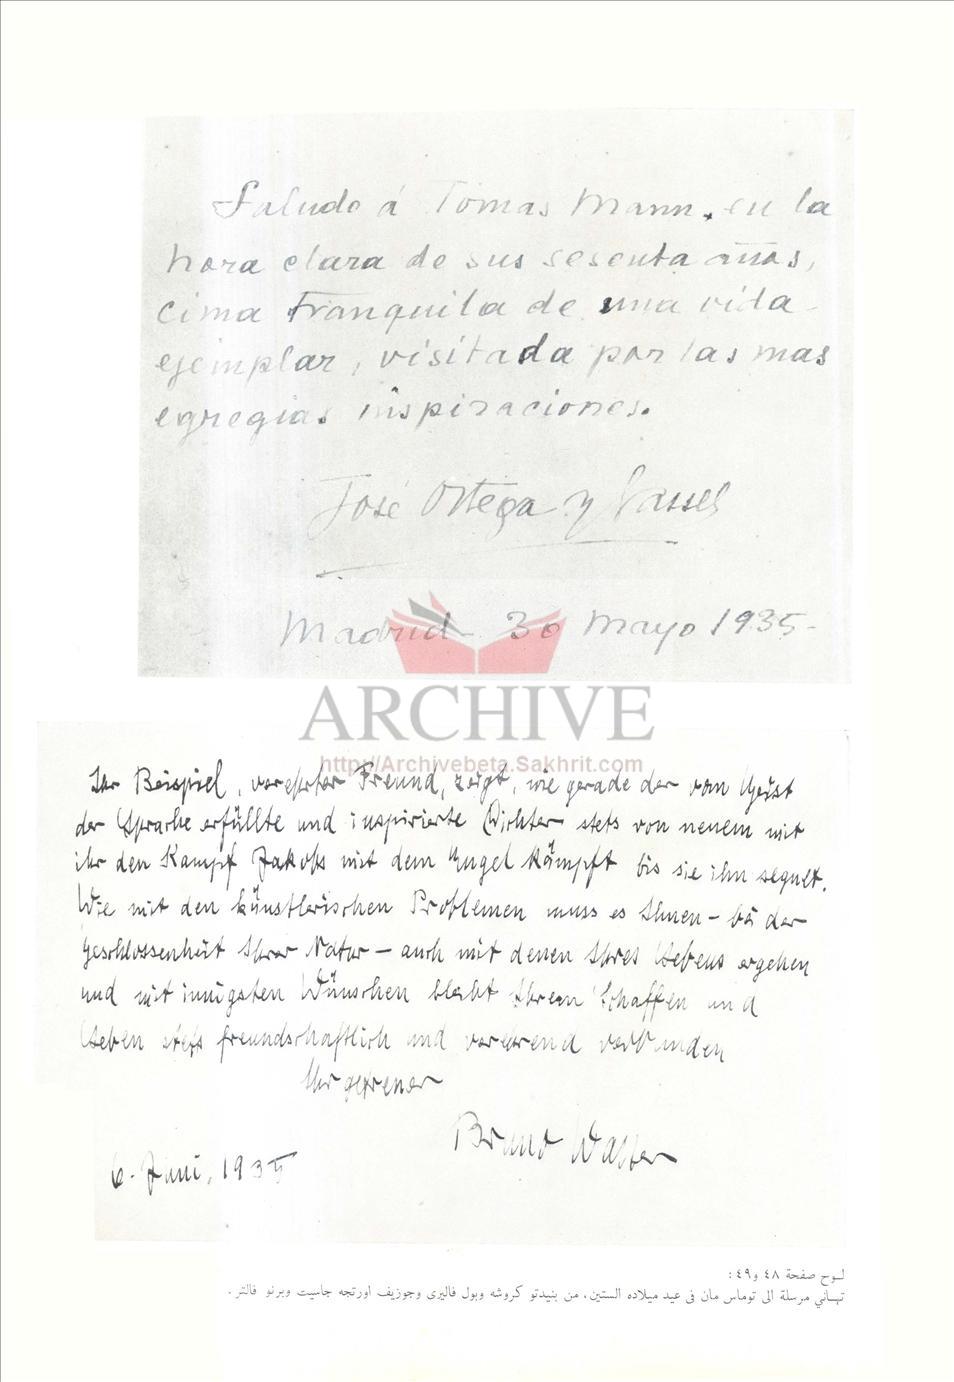 Saludo á Tomas Mann, en la
hora clara de sus sesenta años,
cima tranquila de una vida
ejemplar, visitada por las mas
egregias inspiraciones.
José Ortega y Gasset
Madrid 30 Mayo 1935-
ARCHIVE
http://Archivebeta.Sakhrit.com
Ihr Beispiel, verehrter Freund, zeigt, wie gerade der vom Geist
der Sprache erfüllte und inspirierte Dichter stets von neuem mit
ihr den Kampf Jakobs mit dem Engel kämpft bis sie ihn segnet.
Wie mit den künstlerischen Problemen muss es Ihnen – bei der
Geschlossenheit Ihrer Natur – auch mit denen Ihres Lebens ergehen
und mit innigsten Wünschen bleibt Ihrem Schaffen und
Leben stets freundschaftlich und verehrend verbunden
Ihr getreuer
Bruno Walter
6. Juni, 1935
لـوح صفحة ٤٨ و٤٩ :
تهـاني مرسلة الى توماس مان فى عيد ميلاده الستين، من بنيدتو كروشه وبول فاليرى وجوزيف اورتجه جاسيت وبرنو فالتر .